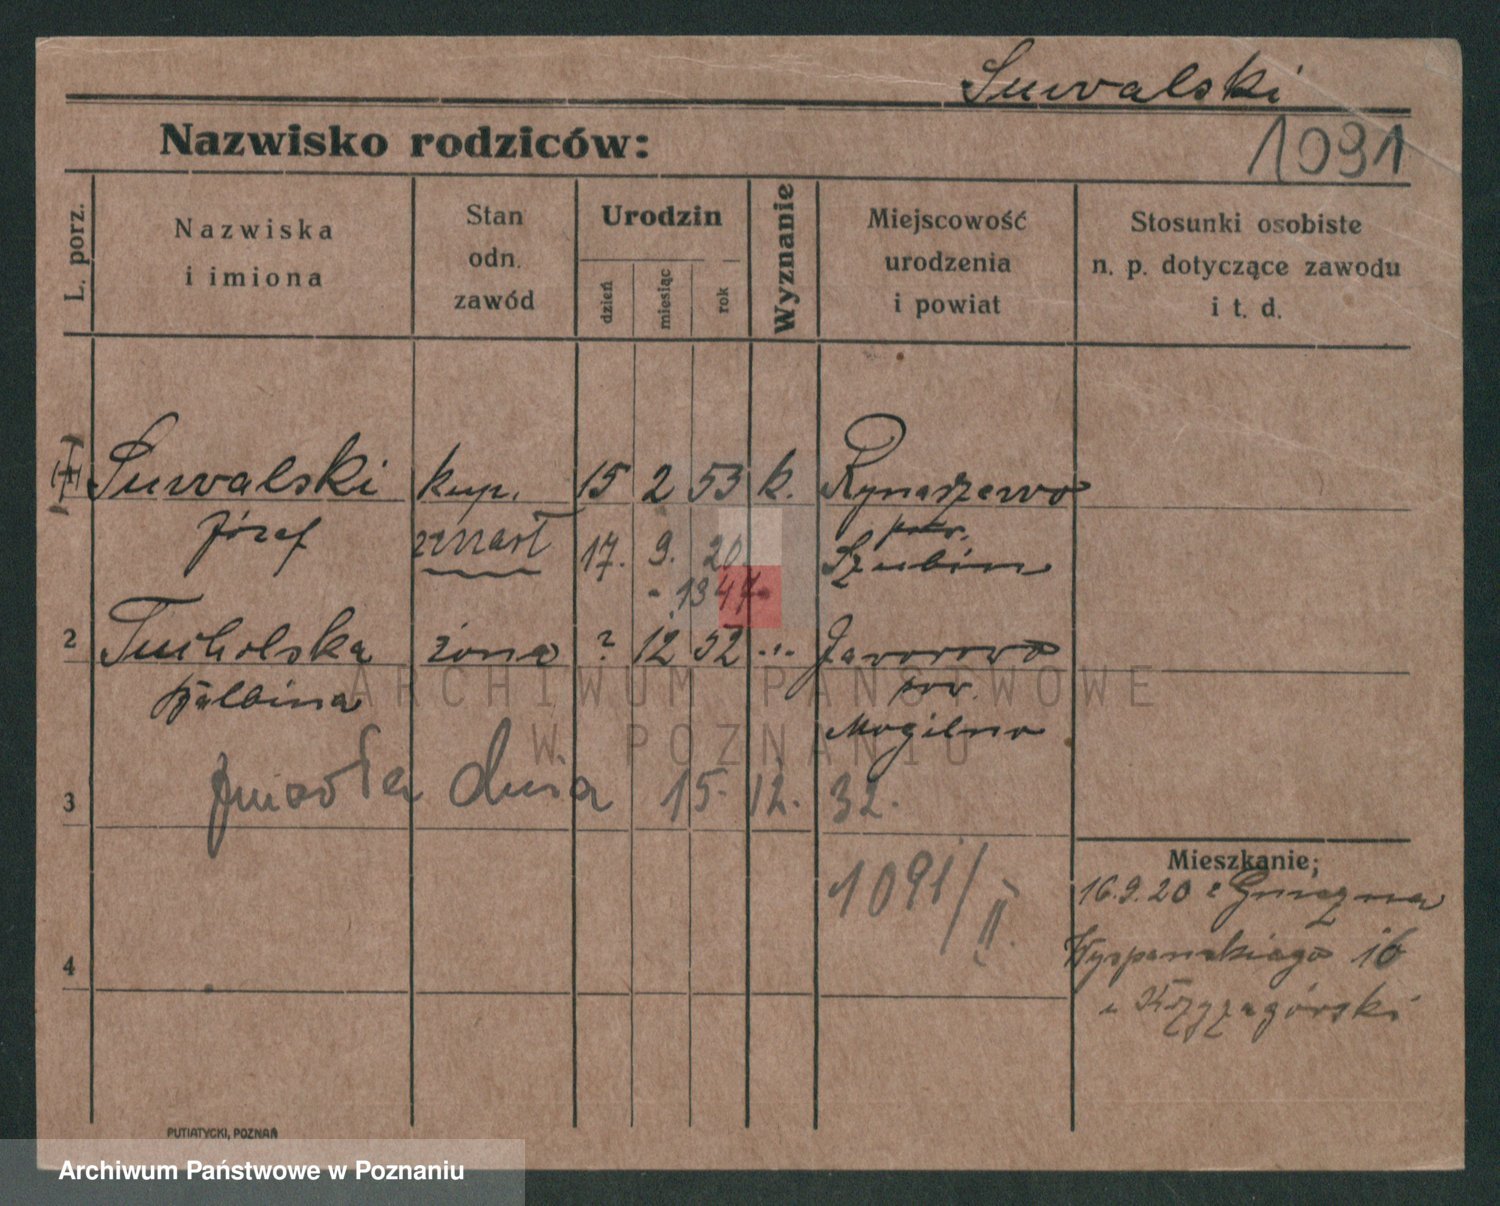 Suwalski
Nazwisko rodziców:
1091
L. porz.
Nazwiska
i imiona
Stan
odn.
zawód
Urodzin
dzień
miesiąc
rok
Wyznanie
Miejscowość
urodzenia
i powiat
Stosunki osobiste
n. p. dotyczące zawodu
i t. d.
Suwalski kup. 15 2 53 k. Rynarzewo
Józef zmarł 17. 9. 20 pow. Szubin
- 1347 -
2 Tucholska żona ? 12 52 -"- Jaworowo
Albina pow.
Mogilno
3 zmarła dnia 15. 12. 32.
1091/II.
Mieszkanie;
16.9.20 z Gniezna
Wyspańskiego 16
u Krzyżagórski
4
PUTIATYCKI, POZNAŃ
ARCHIWUM PAŃSTWOWE
W POZNANIU
Archiwum Państwowe w Poznaniu